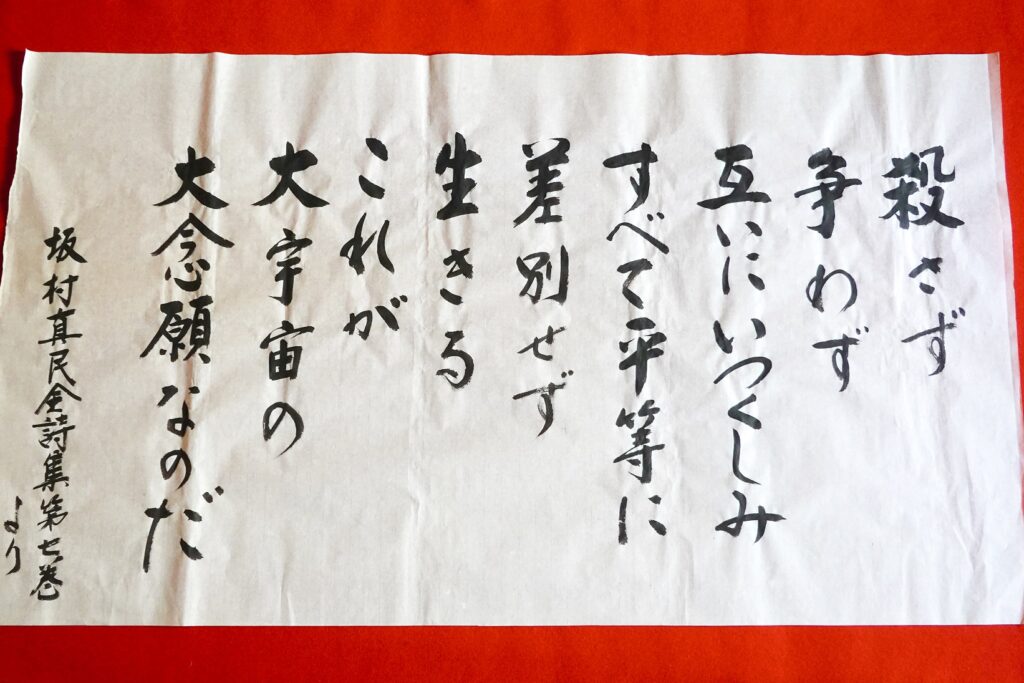 殺さず
争わず
互いにいつくしみ
すべて平等に
差別せず
生きる
これが
大宇宙の
大念願なのだ
坂村真民全詩集第七巻
より